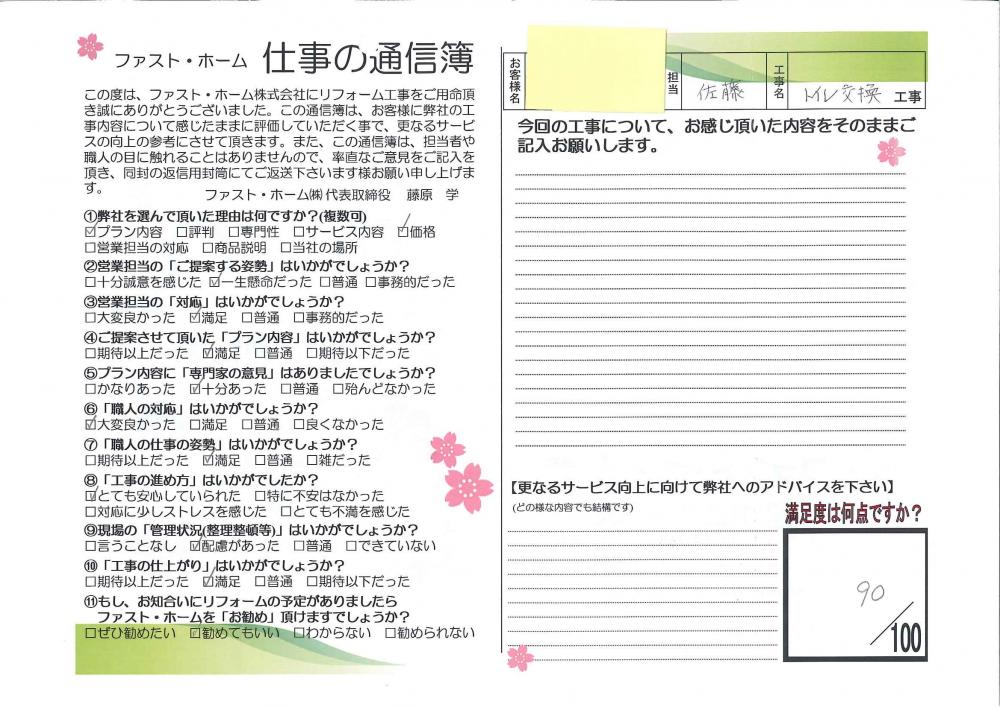 ファスト・ホーム 仕事の通信簿
この度は、ファスト・ホーム株式会社にリフォーム工事をご用命頂
き誠にありがとうございました。この通信簿は、お客様に弊社の工
事内容について感じたままに評価していただく事で、更なるサービ
スの向上の参考にさせて頂きます。また、この通信簿は、担当者や
職人の目に触れることはありませんので、率直なご意見をご記入を
頂き、同封の返信用封筒にてご返送下さいます様お願い申し上げま
す。
ファスト・ホーム㈱ 代表取締役 藤原 学
①弊社を選んで頂いた理由は何ですか?(複数可)
☑プラン内容 □評判 □専門性 □サービス内容 ☑価格
□営業担当の対応 □商品説明 □当社の場所
②営業担当の「ご提案する姿勢」はいかがでしょうか?
□十分誠意を感じた ☑一生懸命だった □普通 □事務的だった
③営業担当の「対応」はいかがでしょうか?
□大変良かった ☑満足 □普通 □事務的だった
④ご提案させて頂いた「プラン内容」はいかがでしょうか?
□期待以上だった ☑満足 □普通 □期待以下だった
⑤プラン内容に「専門家の意見」はありましたでしょうか?
□かなりあった ☑十分あった □普通 □殆んどなかった
⑥「職人の対応」はいかがでしょうか?
☑大変良かった □満足 □普通 □良くなかった
⑦「職人の仕事の姿勢」はいかがでしょうか?
□期待以上だった ☑満足 □普通 □雑だった
⑧「工事の進め方」はいかがでしたか?
☑とても安心していられた □特に不安はなかった
□対応に少しストレスを感じた □とても不満を感じた
⑨現場の「管理状況(整理整頓等)」はいかがでしょうか?
□言うことなし ☑配慮があった □普通 □できていない
⑩「工事の仕上がり」はいかがでしょうか?
□期待以上だった ☑満足 □普通 □期待以下だった
⑪もし、お知合いにリフォームの予定がありましたら
ファスト・ホームを「お勧め」頂けますでしょうか?
□ぜひ勧めたい ☑勧めてもいい □わからない □勧められない
お客様名 担当 佐藤 工事名 トイレ交換 工事
今回の工事について、お感じ頂いた内容をそのままご
記入お願いします。
【更なるサービス向上に向けて弊社へのアドバイスを下さい】
(どの様な内容でも結構です)
満足度は何点ですか?
90/100